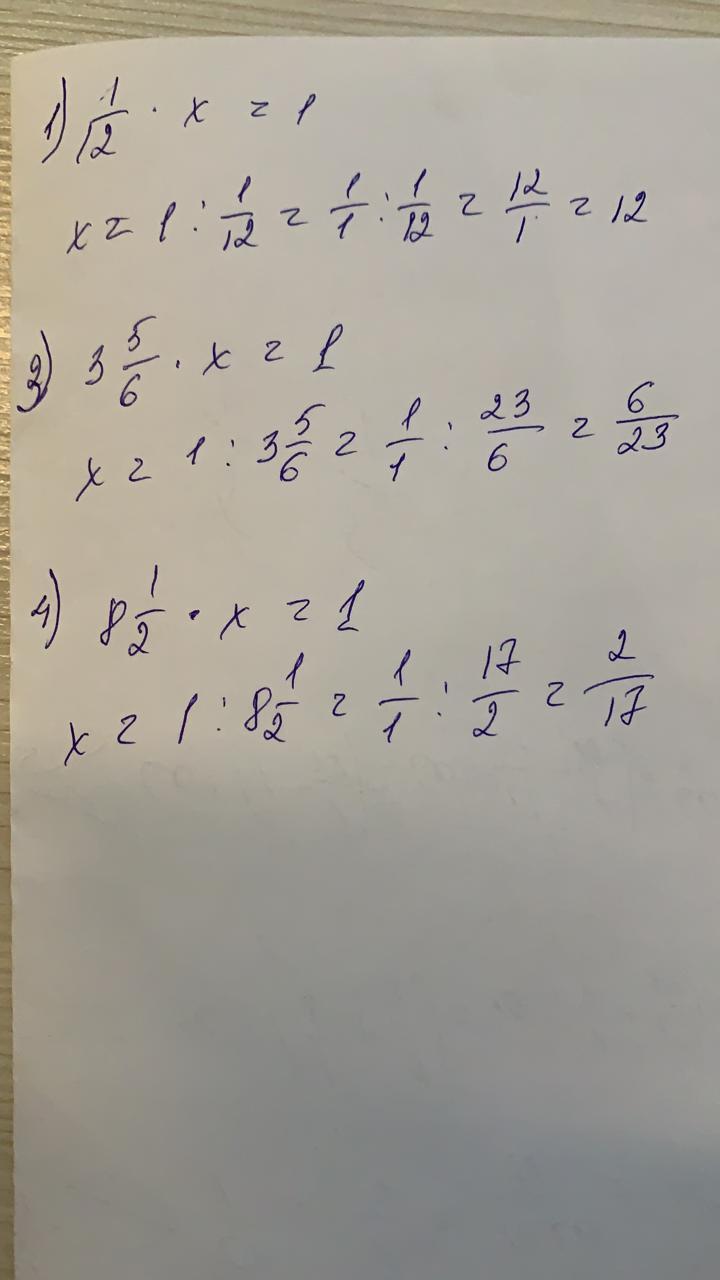 1) 1/12 · x = 1
x = 1 : 1/12 = 1/1 : 1/12 = 12/1 = 12
3) 3 5/6 · x = 1
x = 1 : 3 5/6 = 1/1 : 23/6 = 6/23
4) 8 1/2 · x = 1
x = 1 : 8 1/2 = 1/1 : 17/2 = 2/17